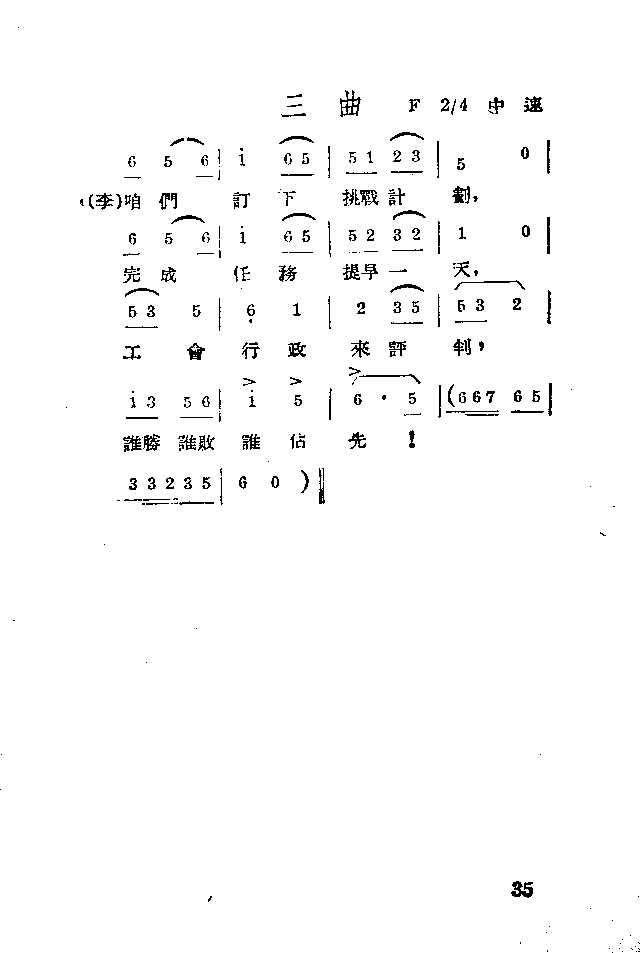 三曲 F 2/4 中速
6 5 6 | i 6 5 | 5 1 2 3 | 5 0 |
(李)咱們訂下挑戰計劃,
6 5 6 | i 6 5 | 5 2 3 2 | 1 0 |
完成任務提早一天,
5 3 5 | 6 1 | 2 3 5 | 5 3 2 |
工會行政來評判,
i 3 5 6 | i 5 | 6 · 5 | (6 6 7 6 5 |
誰勝誰敗誰佔先!
3 3 2 3 5 | 6 0 ) ‖
35